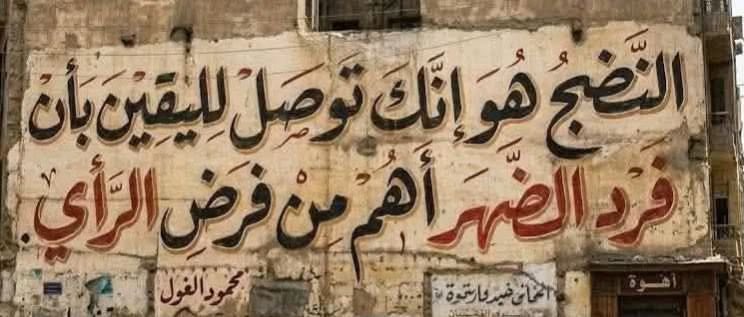 النَّضجُ هُوَ إنَّكَ تَوصَلْ لِليَقِينَ بَأنْ
فَرَد الضَّهَر أَهُمْ مِنْ فَرَضِ الرَّأي.
محمود الغول
أهوة